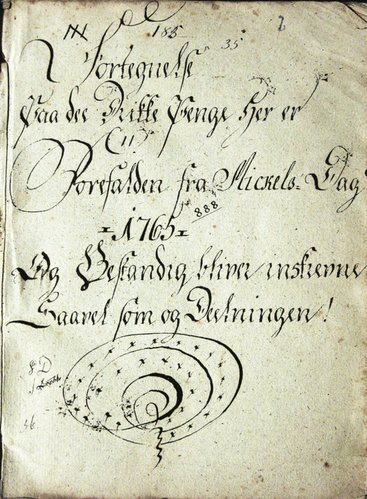 185
35
2
Fortegnelse
Paa dee Drikke Penge her er
Forefalden fra Mickels-Dag
888
1765
Og Bestandig bliver inskrevne
Saavel som og Deelningen!
D